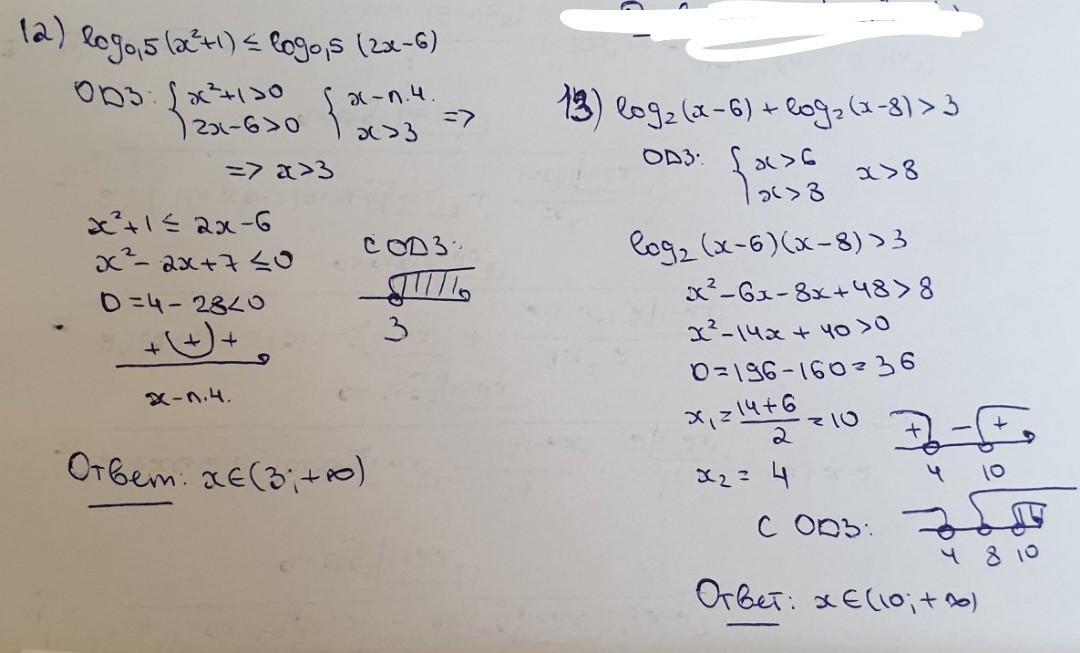 12) log₀,₅(x²+1) ≤ log₀,₅ (2x-6)
ОДЗ: { x²+1>0 { x-л.ч.
2x-6>0 x>3 =>
=> x>3
x²+1 ≤ 2x-6
x²-2x+7 ≤0
D=4-28<0
+ (+) +
x-л.ч.
С ОДЗ:
3
Ответ: x∈(3;+∞)
13) log₂(x-6)+log₂(x-8)>3
ОДЗ: { x>6 x>8
x>8
log₂(x-6)(x-8)>3
x²-6x-8x+48>8
x²-14x+40>0
D=196-160=36
x₁=(14+6)/2=10
x₂=4
+ - +
4 10
С ОДЗ:
4 8 10
Ответ: x∈(10;+∞)